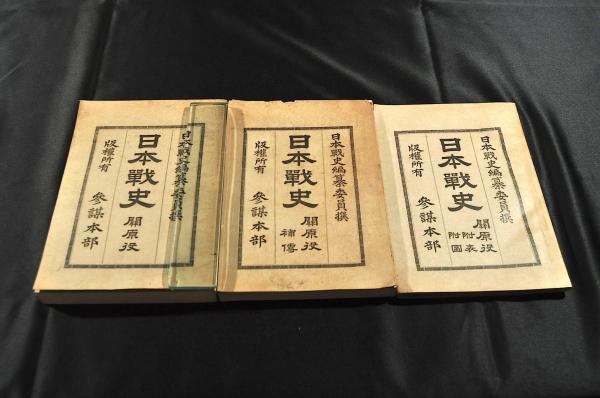 日本戰史編纂委員撰
日本戰史
關原役
版權所有
參謀本部
日本戰史編纂委員撰
日本戰史
關原役
補傳
版權所有
參謀本部
日本戰史編纂委員撰
日本戰史
關原役
附表
附圖
版權所有
參謀本部